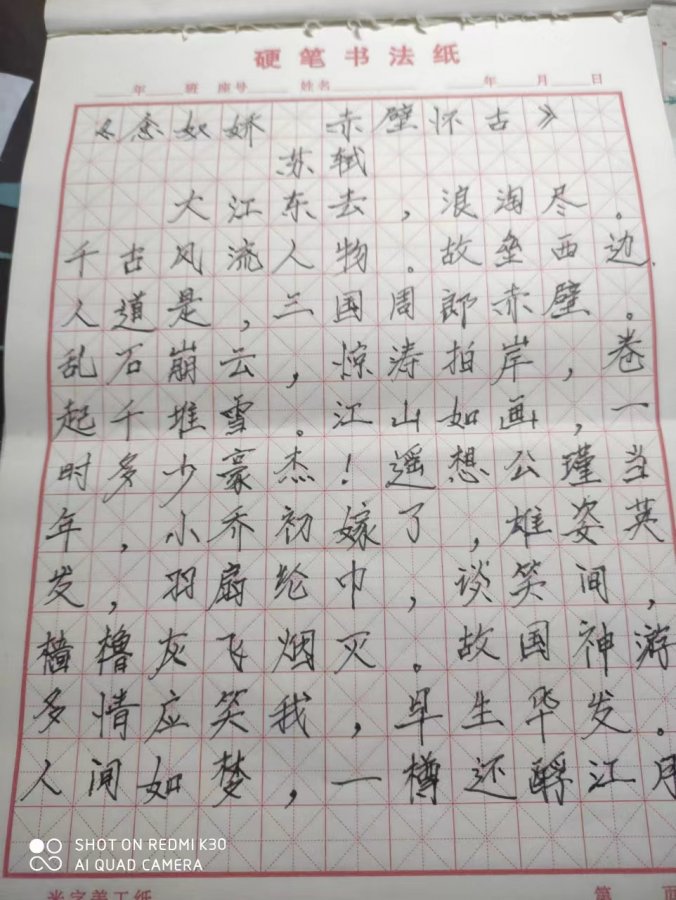 硬笔书法纸
年 班 座号 姓名 年 月 日
《念奴娇 赤壁怀古》
苏轼
大江东去，浪淘尽。
千古风流人物。故垒西边.
人道是，三国周郎赤壁。
乱石崩云，惊涛拍岸，卷
起千堆雪。江山如画，一
时多少豪杰！遥想公瑾当
年，小乔初嫁了，雄姿英
发，羽扇纶巾，谈笑间，
樯橹灰飞烟灭。故国神游
多情应笑我，早生华发。
人间如梦，一樽还酹江月
SHOT ON REDMI K30
AI QUAD CAMERA
米字美工纸 第 页